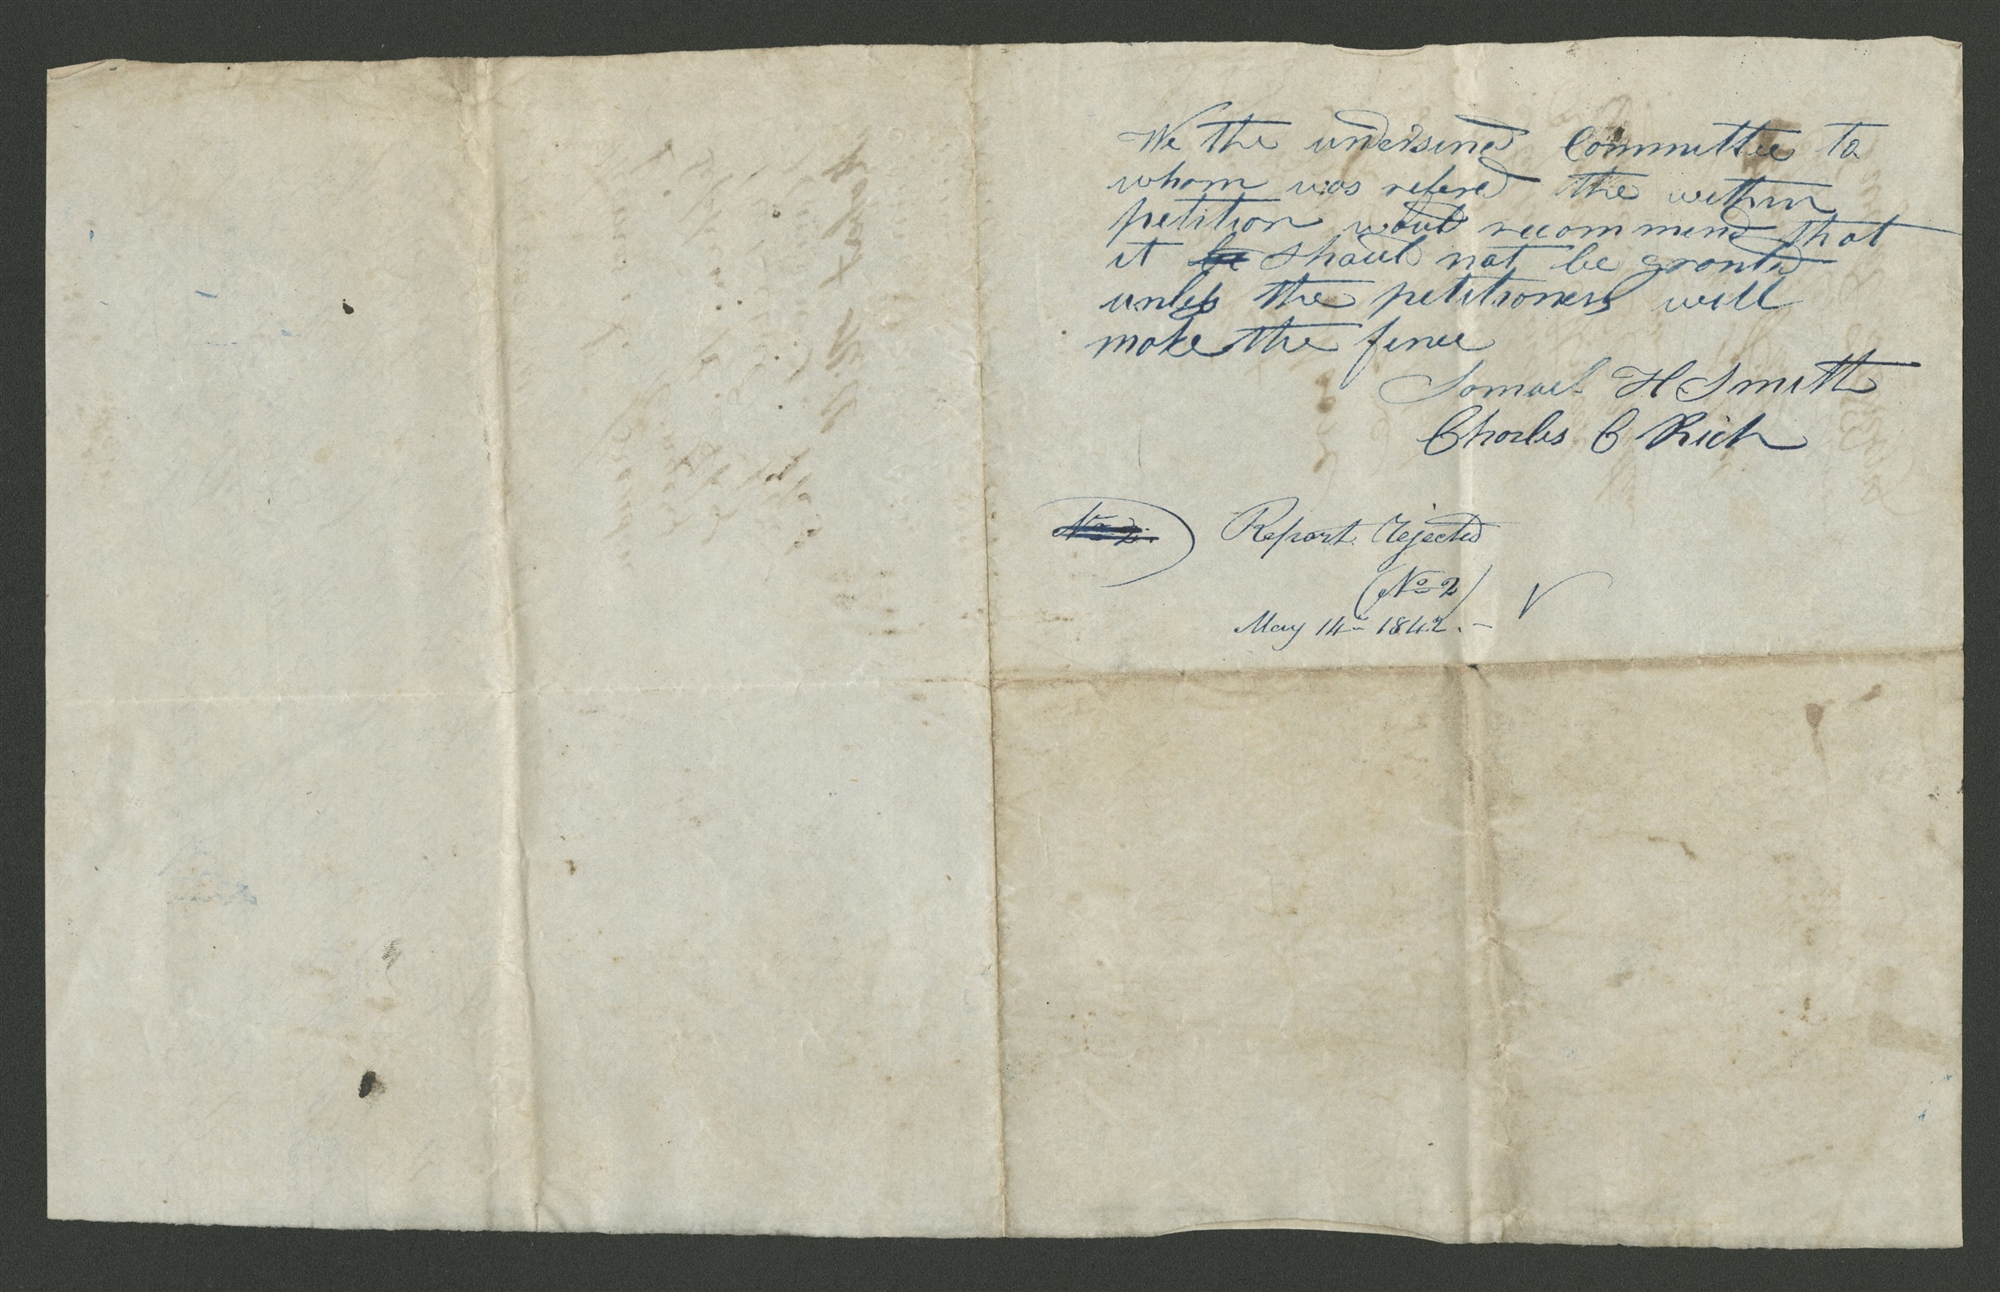 We the undersined Committee to
whom was refered the within
petition would recommend that
it be should not be granted
unless the petitioners will
make the fence
Samuel H Smith
Charles C Rich
No 2.
Report Rejected
(No 2)
May 14th 1842. —